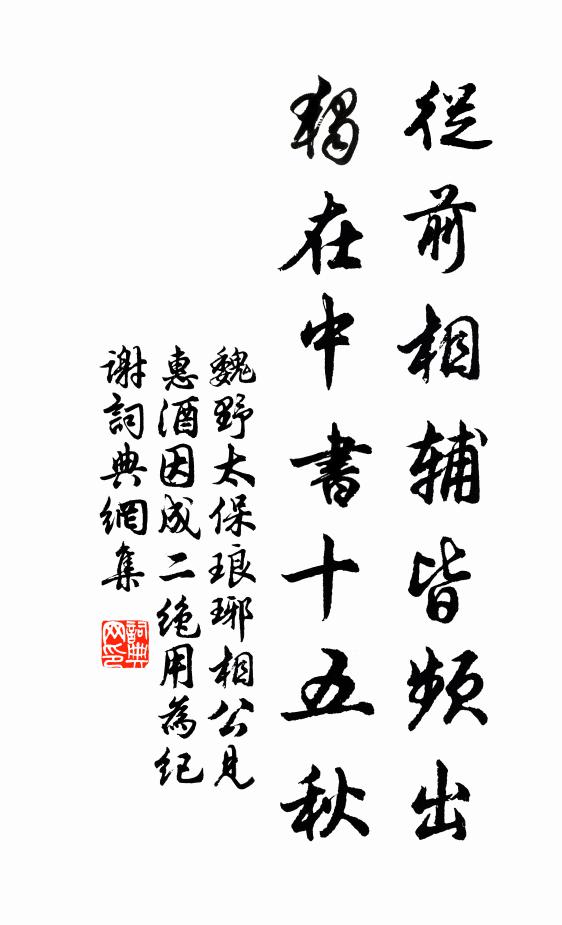 從前相輔皆頻出
獨在中書十五秋
魏野太保琅琊相公見
惠酒因成二絶用為紀
謝詞典網集
詞典网印